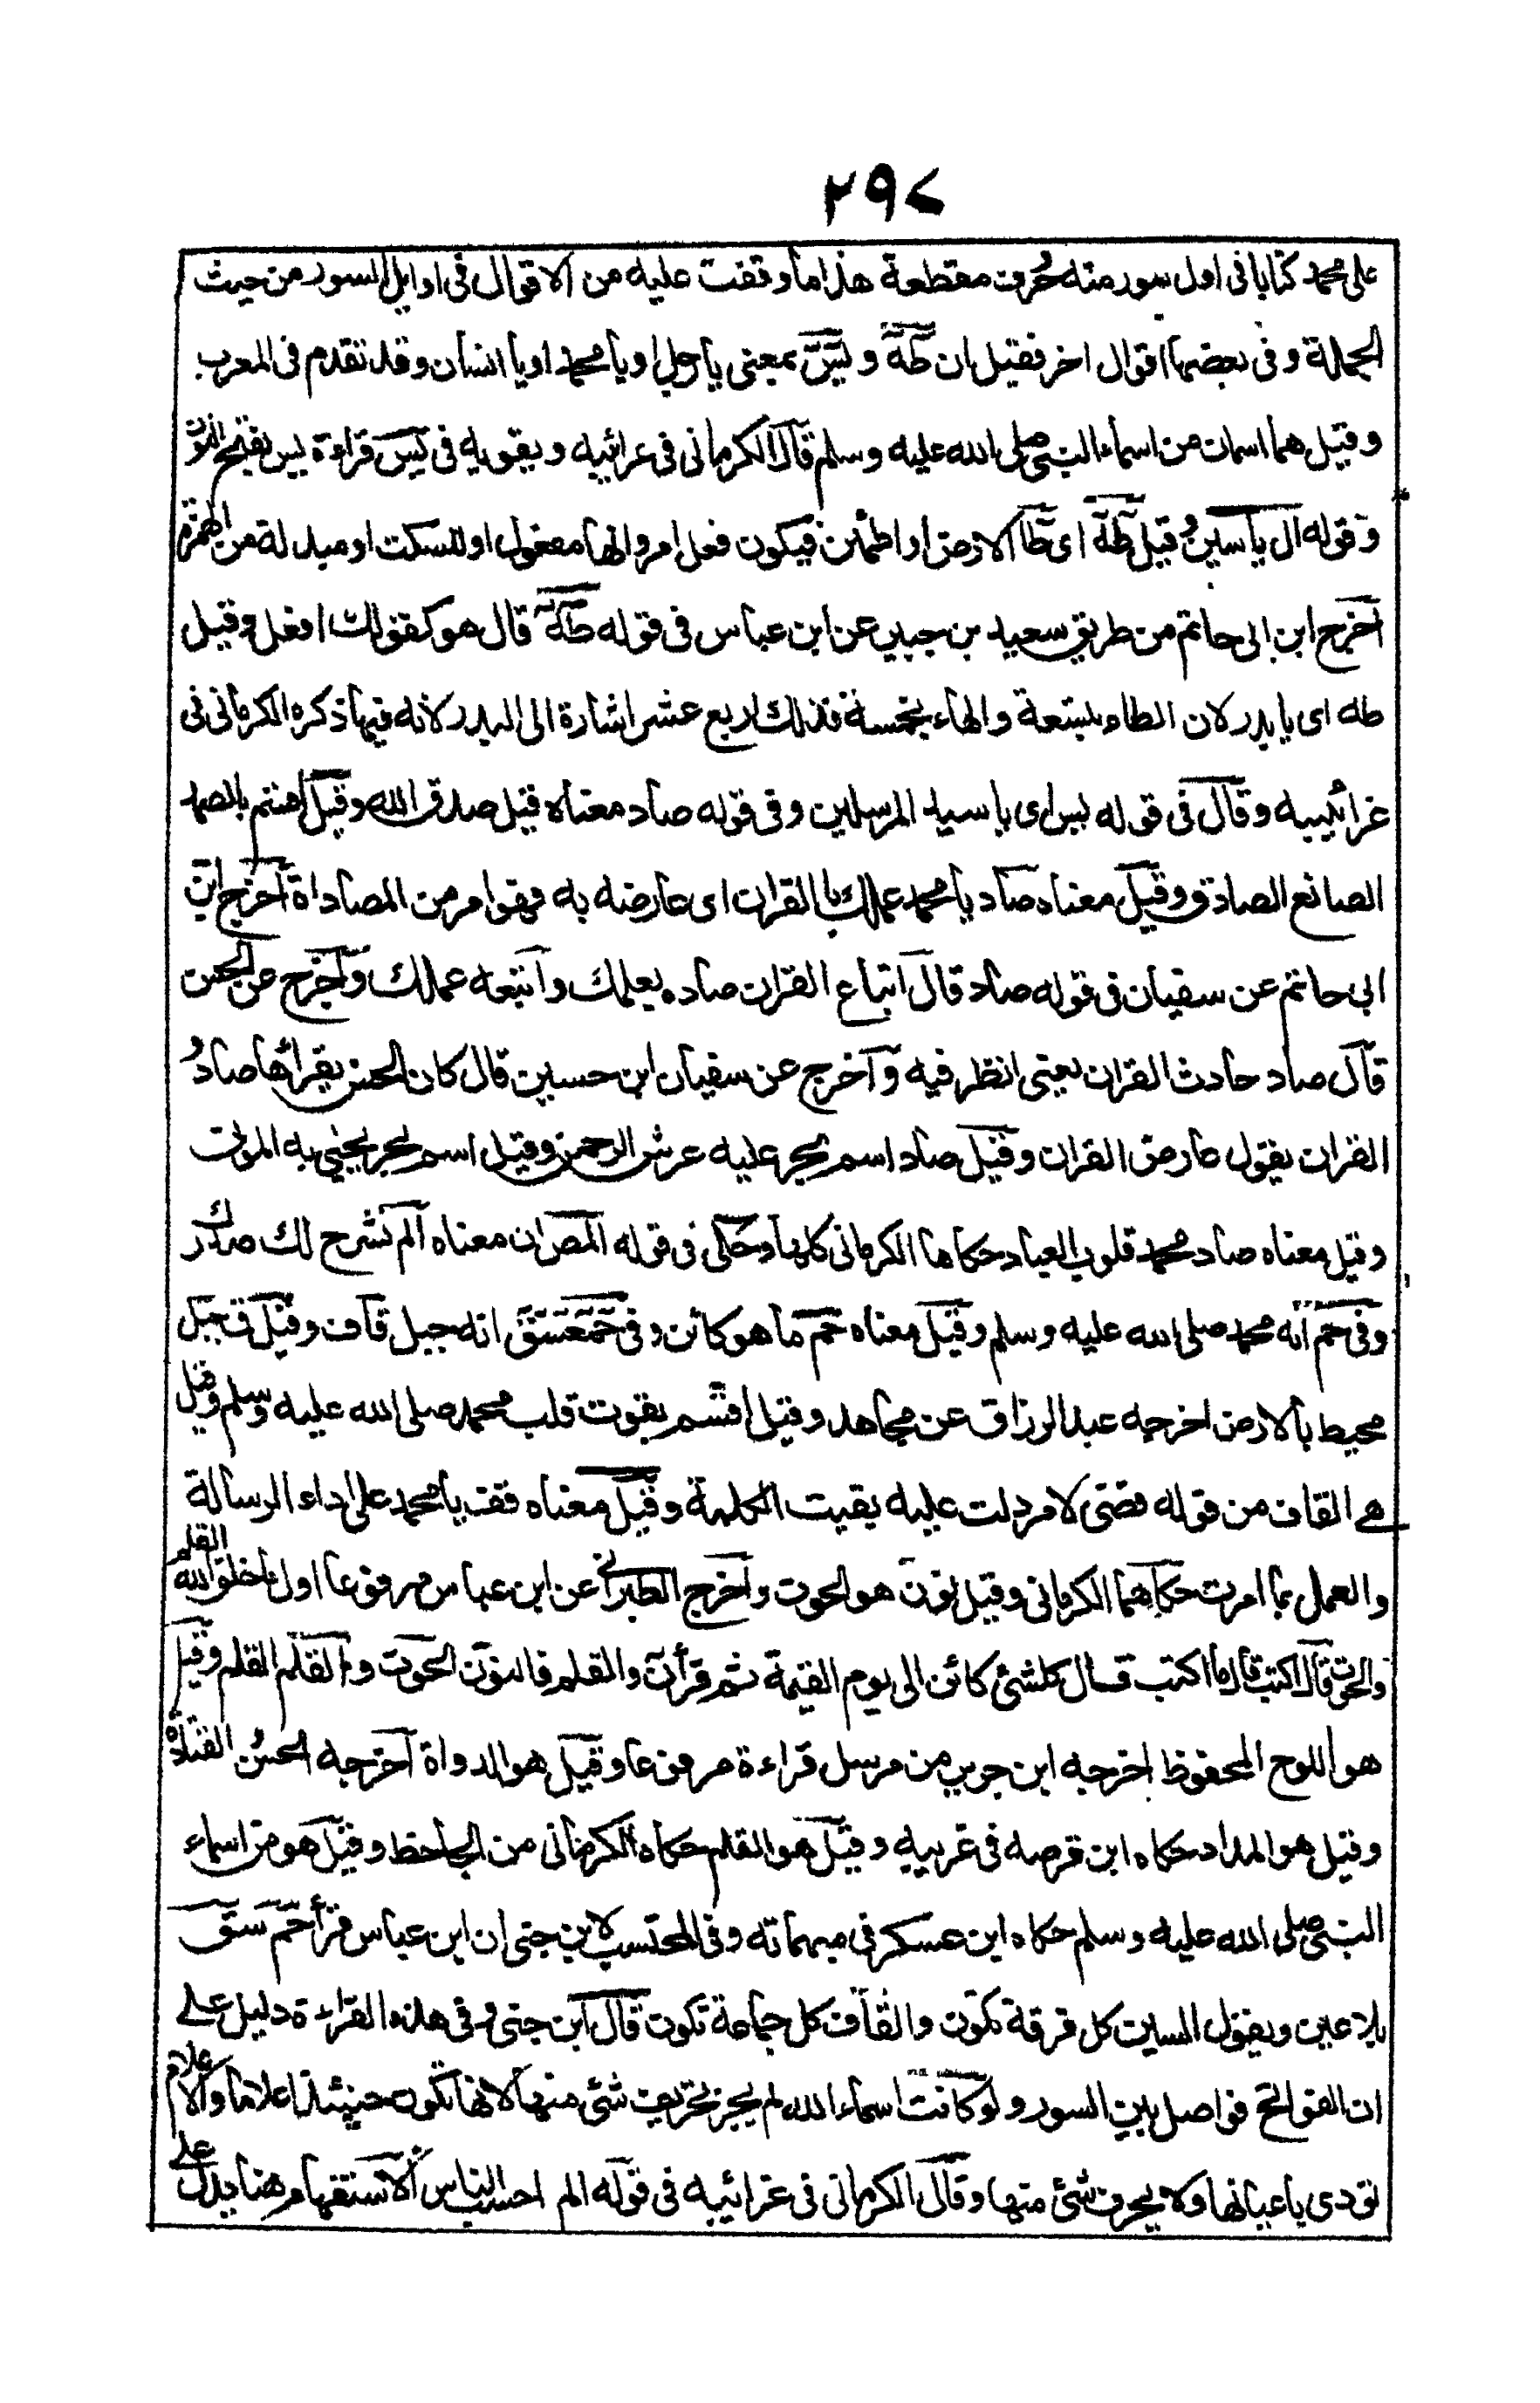 ٢٩٧
على محمد كتابا فى اول سور منه حُروف مقطعة هذا ما وقفت عليه من الاقوال فى اوايل السور من حيث
الجملة و فى بعضها اقوال اخر فقيل ان طٰهٰ و يٰسٓ بمعنى يا رجل او يا محمد او يا انسان و قد تقدم فى المعرب
و قيل هما اسمان من اسماء النبى صلى الله عليه و سلم قال الكرمانى فى عرائيبه و يقويه فى يٰسٓ قراءة يس بفتح النون
و قوله ال ياسينُ و قيل طٰهٰ اى طأ الارض او اطمئن فيكون فعل امر و الها مفعول او للسكت او مبدلة من الهمزة
اخرج ابن ابى حاتم من طريق سعيد بن جبير عن ابن عباس فى قوله طٰهٰ قال هو كقولك افعل و قيل
طه اى يا بدر لان الطاء بتسعة و الهاء بخمسة فذلك اربع عشر اشارة الى البدر لانه فيها ذكره الكرمانى فى
غرائيبه و قال فى قوله يس اى يا سيد المرسلين و فى قوله صاد معناه قيل صدق الله و قيل اقسم بالصمد
الصانع الصادق و قيل معناه صاد يا محمد عملك بالقران اى عارضه به فهو امر من المصاداة اخرج ابن
ابى حاتم عن سفيان فى قوله صاد قال اتباع القران صاده بعلمك و اتبعه عملك و اخرج عن الحسن
قال صاد حادث القران يعنى انظر فيه و اخرج عن سفيان ابن حسين قال كان الحسن يقرائها صادُ و
القران يقول عارض القران و قيل صاد اسم بحر عليه عرش الرحمن و قيل اسم بحر يحيي به الموتى
و قيل معناه صاد محمد قلوب العباد حكاها الكرمانى كلها و حكى فى قوله المص ان معناه الم نشرح لك صدرك
و فى حم انه محمد صلى الله عليه و سلم و قيل معناه حم ما هو كائن و فى حمعسق انه جبل قاف و قيل ق جبل
محيط بالارض اخرجه عبد الرزاق عن مجاهد و قيل اقسم بقوت قلب محمد صلى الله عليه و سلم و قيل
هے القاف من قوله قضى الامر دلت عليه بقيت الكلمة و قيل معناه قف يا محمد على اداء الرسالة
و العمل بما امرت حكاهما الكرمانى و قيل نون هو الحوت و اخرج الطبرانى عن ابن عباس مرفوعا اول ما خلق الله القلم
والحوت قال اكتب قال ما اكتب قال كلشئ كائن الى يوم القيمة ثم قرأ ن والقلم فالنون الحوت و القلم القلم و قيل
هو اللوح المحفوظ اخرجه ابن جرير من مرسل قراءة مرفوعا و قيل هو الدواة اخرجه الحسن القتادة
و قيل هو المداد حكاه ابن قرصه فى غريبه و قيل هو القلم حكاه الكرمانى من الجاحظ و قيل هو من اسماء
النبى صلى الله عليه و سلم حكاه ابن عسكر فى مبهماته و فى المحتسب لابن جنى ان ابن عباس قرأ حم سق
بلا عين و يقول السين كل فرقة تكون و القاف كل جماعة تكون قال ابن جنى و فى هذه القراءة دليل علے
ان الفواتح فواصل بين السور و لو كانت اسماء الله لم يجز تحريف شئ منها لانها تكون حينئذ اعلاما و الاعلام
تودى باعيانها ولا يحرف شئ منها و قال الكرمانى فى غرائيبه فى قوله الم احسب الناس الاستفهام هنا يدل علے